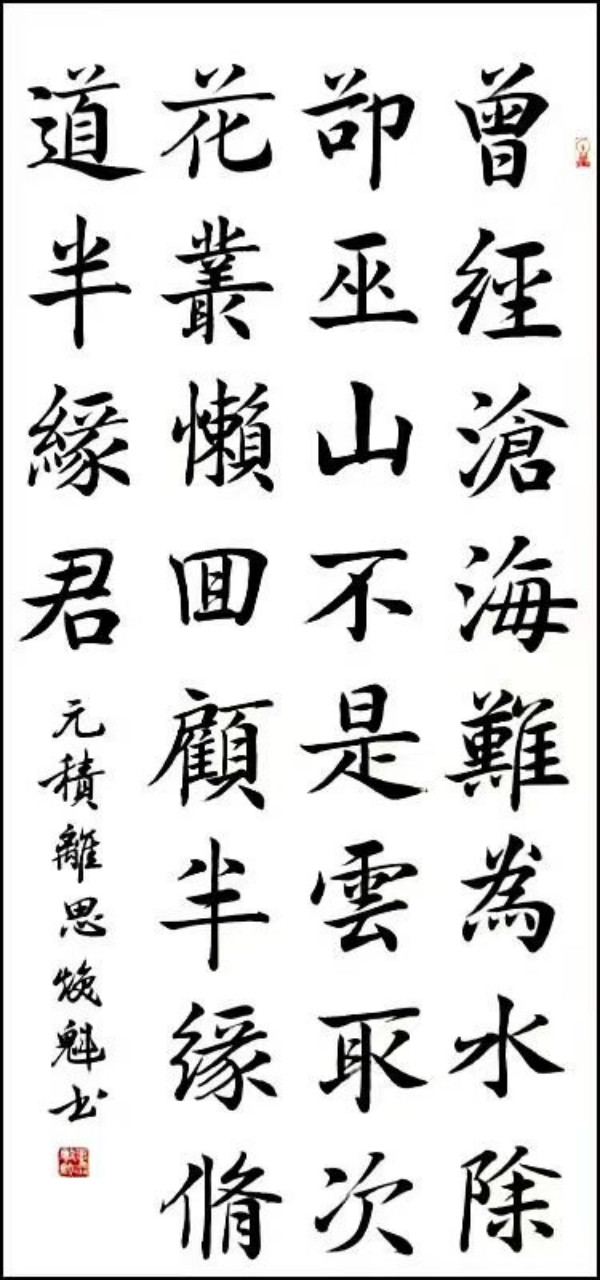 曾經滄海難為水除
卻巫山不是雲取次
花叢懶回顧半緣脩
道半緣君
元積離思煥魁书